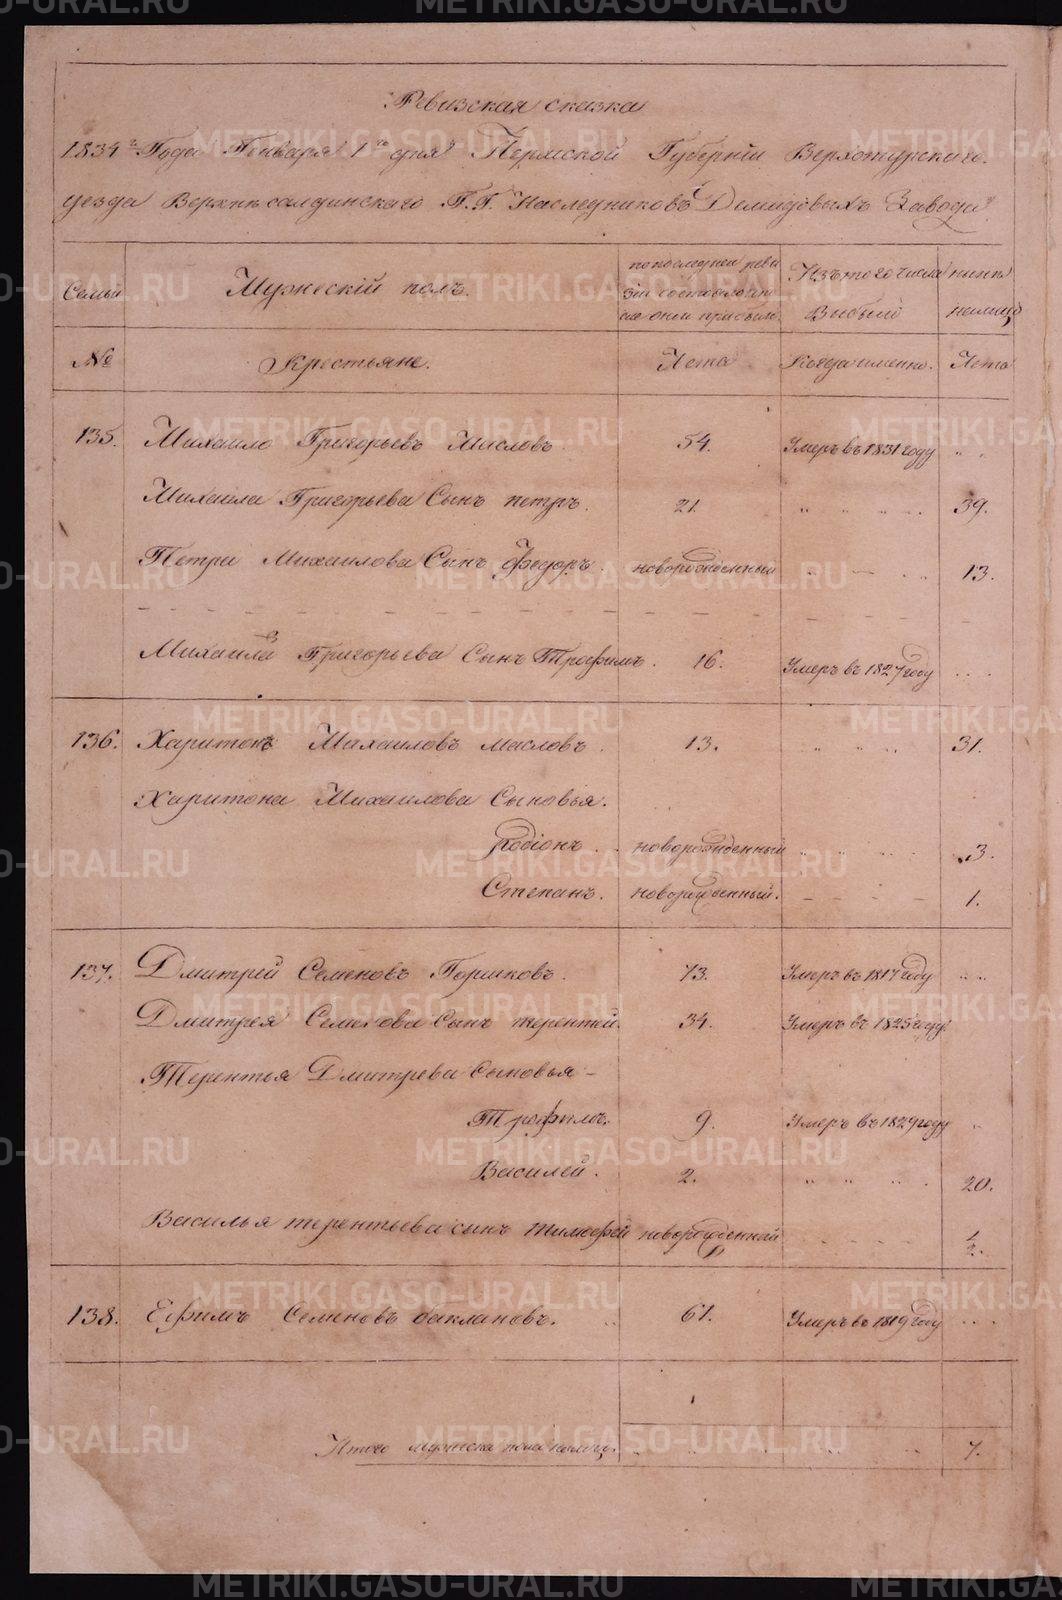 Ревизская сказка
1834го Года Генваря 1го дня Пермской Губерніи Верхотурскаго
уезда Верхнесалдинскаго Г.Г. Наследниковъ Демидовыхъ Завода
Семьи Мужескій полъ. по последней реви Изъ того числа ныне
зіи состояло и по Выбыли налицо
сле оной прибыло
№ Крестьяне. Лета Когда именно. Лета
135. Михаило Григорьевъ Масловъ. 54. Умеръ въ 1831 году
Михаила Григорьева Сынъ петръ. 21. 39.
Петра Михаилова Сынъ федоръ. новорожденный 13.
Михаила Григорьева Сынъ Трофимъ. 16. Умеръ въ 1827 году
136. Харитонъ Михаиловъ масловъ. 13. 31.
Харитона Михаилова Сыновья.
Родіонъ. новорожденный 3.
Степанъ. новорожденный. 1.
137. Дмитрей Семеновъ Горшковъ. 73. Умеръ въ 1817 году
Дмитрея Семенова Сынъ терентей. 34. Умеръ въ 1825 году
Терентья Дмитрева Сыновья
Трофимъ. 9. Умеръ въ 1829 году
Василей. 2. 20.
Василья терентьева сынъ тимофей новорожденной 1/2.
138. Ефимъ Семеновъ баклановъ. 61. Умеръ въ 1819 году
Итого мужеска пола налицо. 7.
METRIKI.GASO-URAL.RU